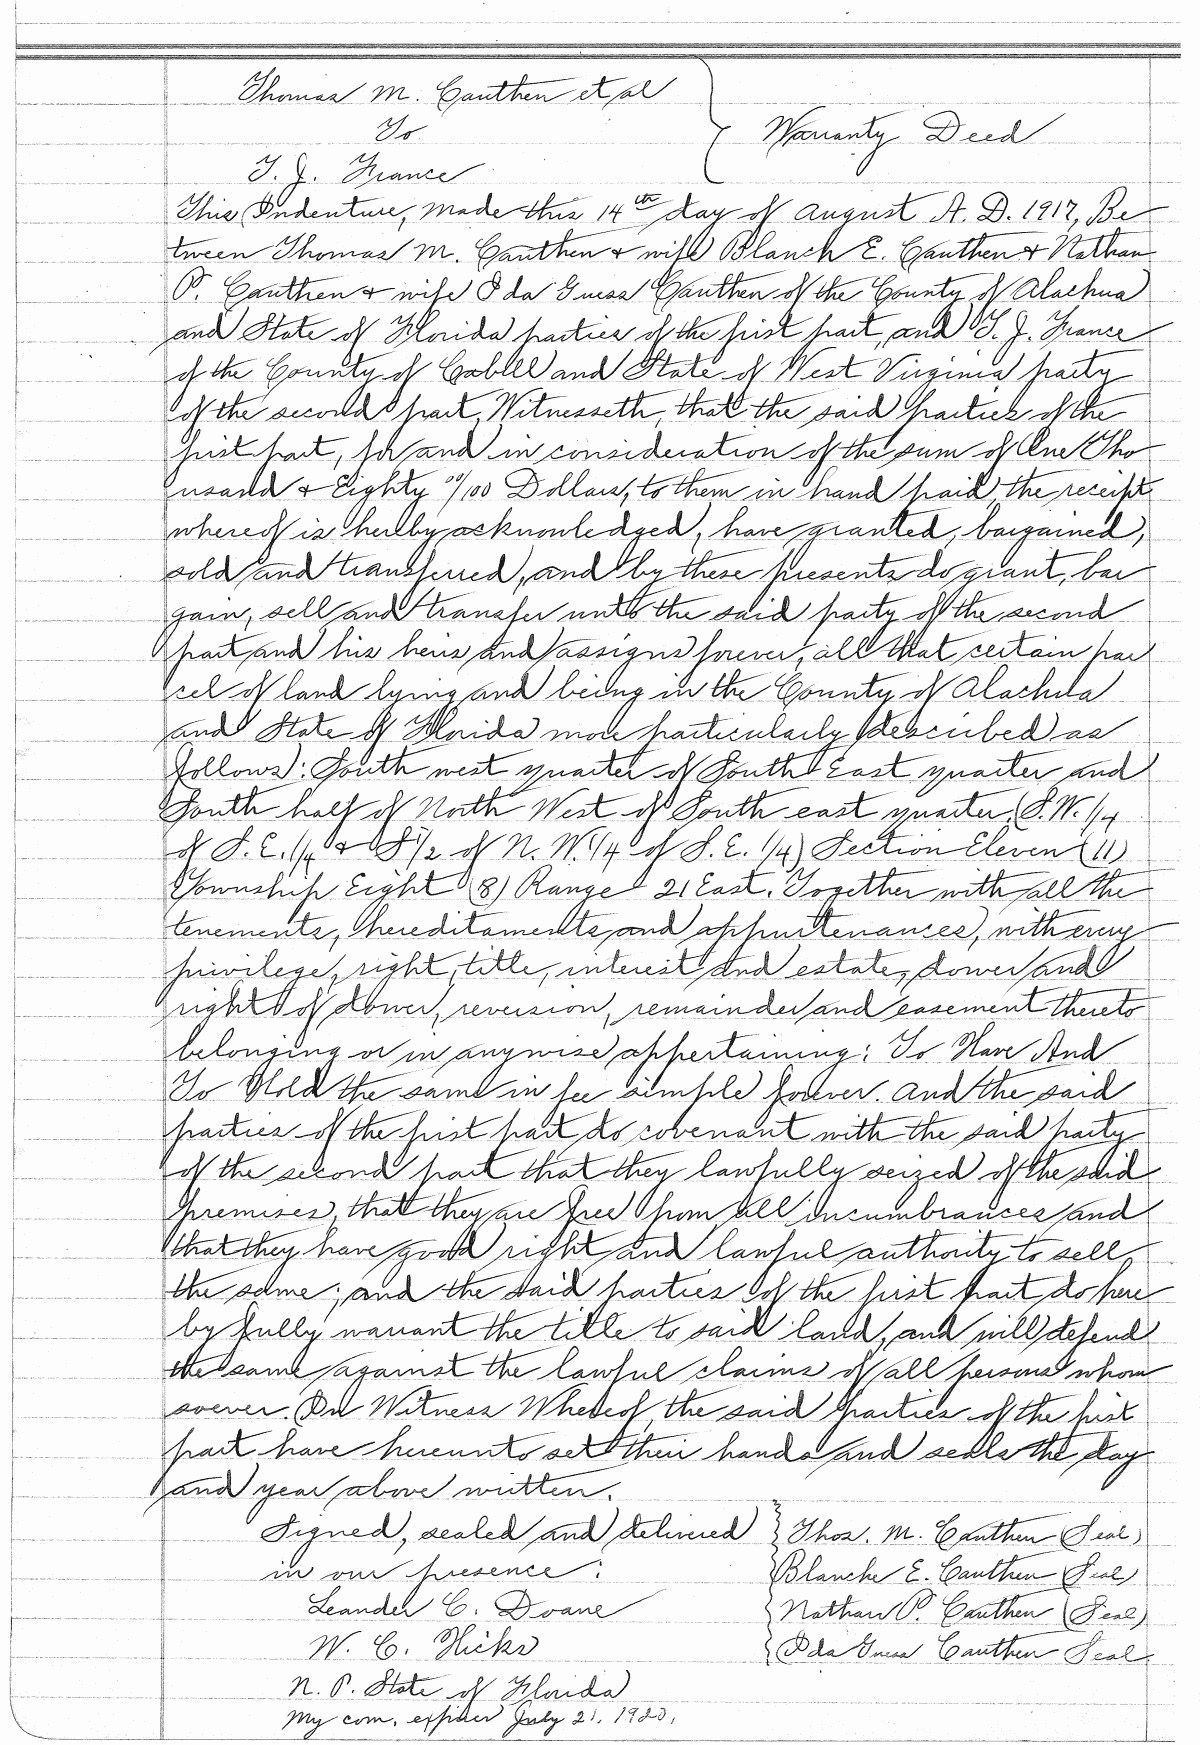 Thomas M. Cauthen et al
To
Warranty Deed
T. J. France
This Indenture, made this 14th day of August A. D. 1917, Be
tween Thomas M. Cauthen & wife Blanch E. Cauthen & Nathan
P. Cauthen & wife Ida Guess Cauthen of the County of Alachua
and State of Florida parties of the first part, and T. J. France
of the County of Cabell and State of West Virginia party
of the second part, Witnesseth, that the said parties of the
first part, for and in consideration of the sum of One Tho
usand & Eighty 00/100 Dollars, to them in hand paid, the receipt
whereof is hereby acknowledged, have granted, bargained,
sold and transferred, and by these presents do grant, bar
gain, sell and transfer unto the said party of the second
part and his heirs and assigns forever, all that certain par
cel of land lying and being in the County of Alachua
and State of Florida more particularly described as
follows: South west quarter of South East quarter and
South half of North West of South east quarter, (S.W. 1/4
of S.E. 1/4 & S 1/2 of N.W. 1/4 of S.E. 1/4) Section Eleven (11)
Township Eight (8) Range 21 East. Together with all the
tenements, hereditaments and appurtenances, with every
privilege, right, title, interest and estate, dower and
right of dower, reversion, remainder and easement thereto
belonging or in anywise appertaining: To Have And
To Hold the same in fee simple forever. And the said
parties of the first part do covenant with the said party
of the second part that they lawfully seized of the said
premises, that they are free from all incumbrances and
that they have good right and lawful authority to sell
the same; and the said parties of the first part do here
by fully warrant the title to said land, and will defend
the same against the lawful claims of all persons whom
soever. In Witness Whereof, the said parties of the first
part have hereunto set their hands and seals the day
and year above written.
Signed, sealed and delivered Thos. M. Cauthen (Seal)
in our presence: Blanche E. Cauthen (Seal)
Leander C. Doane Nathan P. Cauthen (Seal)
W. C. Hicks Ida Guess Cauthen Seal
N. P. State of Florida
My com. expires July 21, 1920.